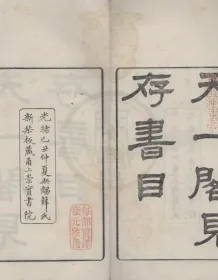 天一閣見
存書目
光緒己丑仲夏無錫薛氏
新栞板藏甬上崇實書院